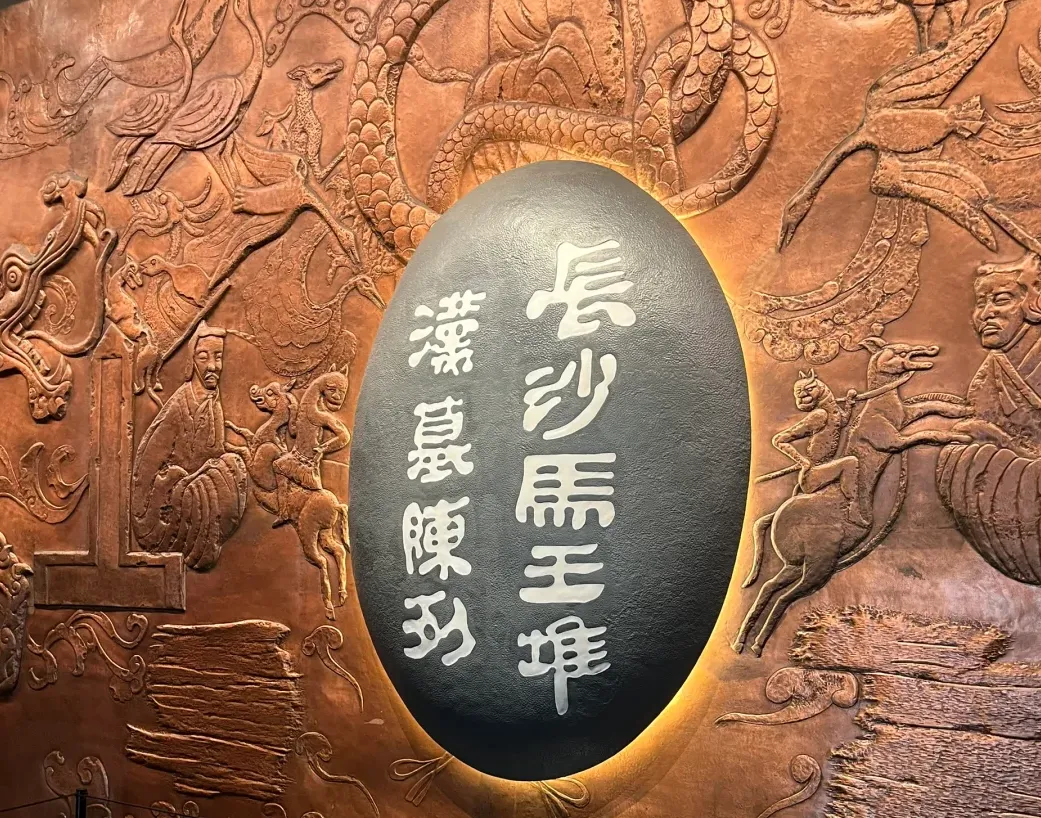 长沙馬王堆
漢墓陳列